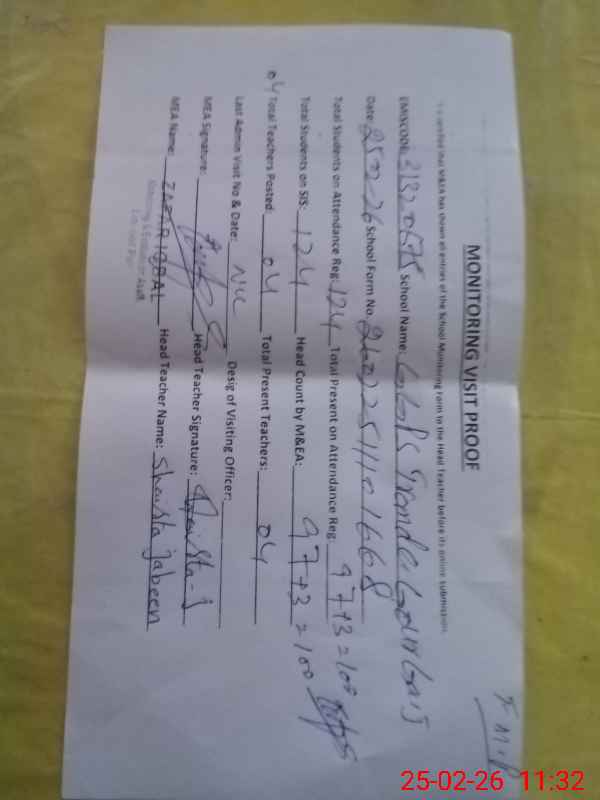 F M P
MONITORING VISIT PROOF
It is certified that M&EA has shown all entries of the School Monitoring Form to the Head Teacher before its online submission.
EMISCODE: 31320675 School Name: GGPS
Date: 25-02-26 School Form No. 26022511101668
Total Students on Attendance Reg: 124 Total Present on Attendance Reg: 97+3=100
Total Students on SIS: 124 Head Count by M&EA: 97+3=100
04 Total Teachers Posted: 04 Total Present Teachers: 04
Last Admin Visit No & Date: Nil Desig of Visiting Officer:
MEA Signature: Head Teacher Signature: Shaista-J
MEA Name: ZAFAR IQBAL Head Teacher Name: Shaista jabeen
25-02-26 11:32